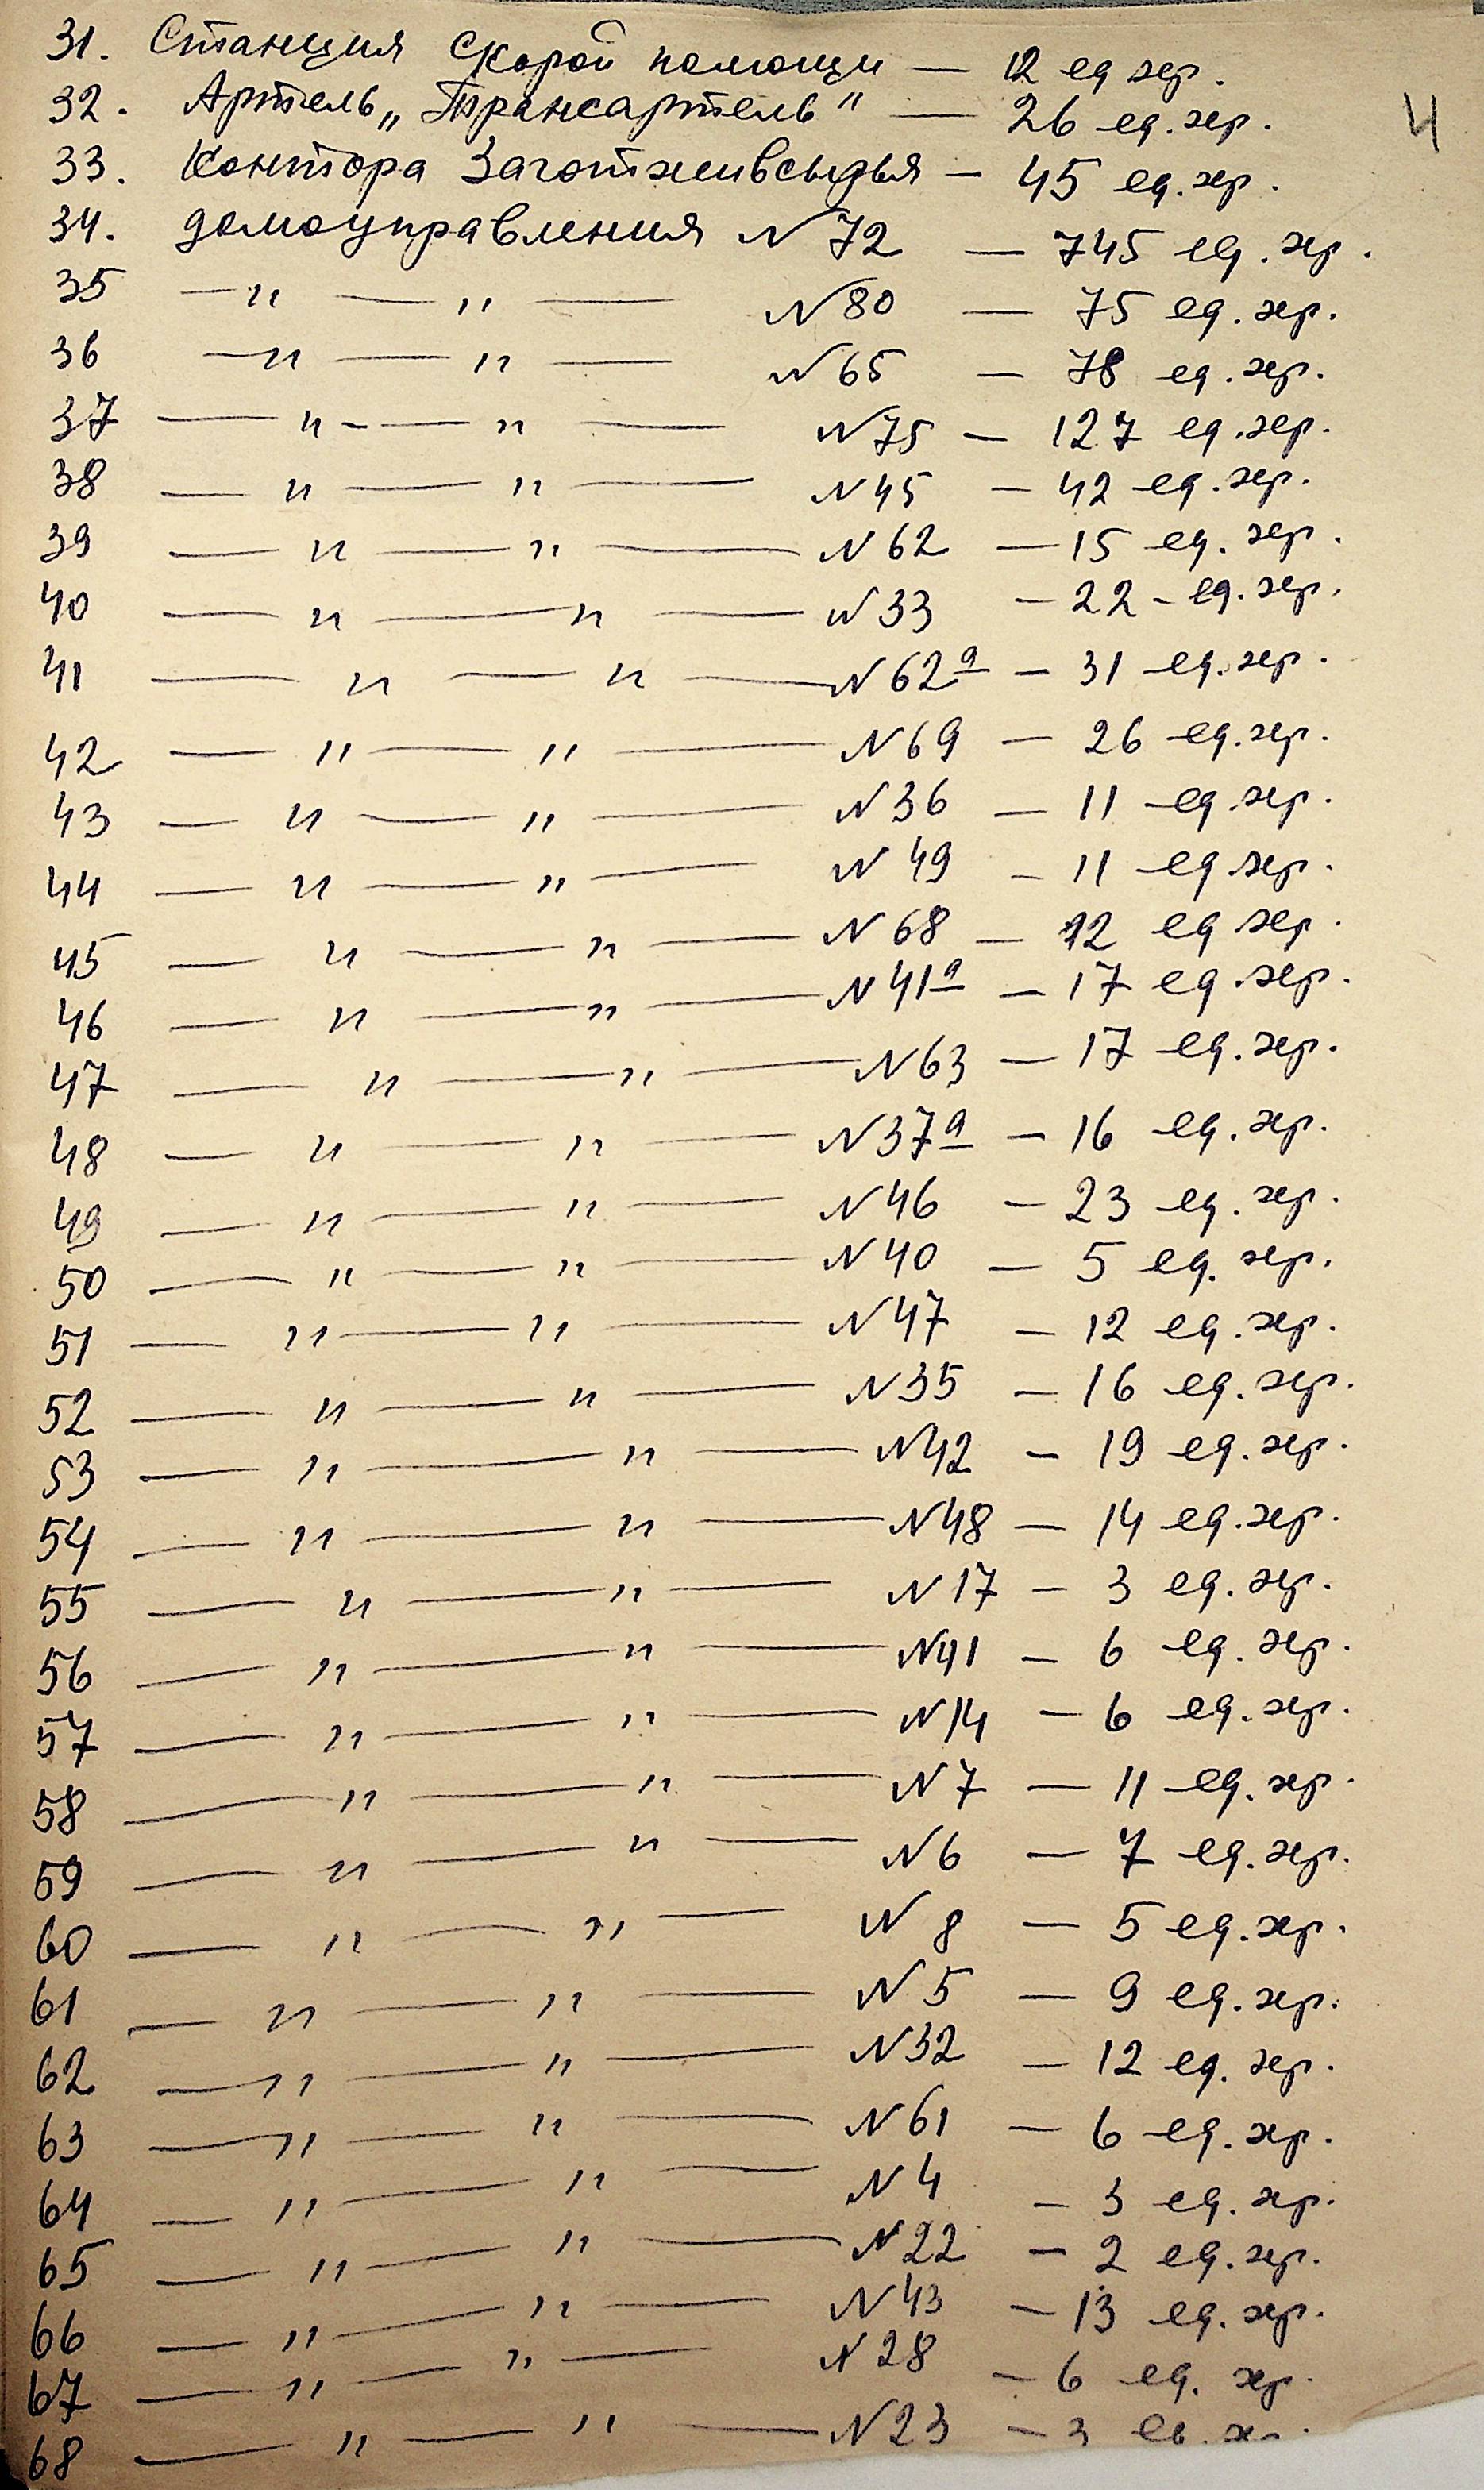 31. Станция скорой помощи — 12 ед хр.
4
32. Артель „Трансартель" — 26 ед. хр.
33. Контора Заготживсырья — 45 ед. хр.
34. домоуправления N 72 — 745 ед. хр.
35 —"— " — N 80 — 75 ед. хр.
36 —"— " — N 65 — 78 ед. хр.
37 — " - — " — N 75 — 127 ед. хр.
38 — " — " — N 45 — 42 ед. хр.
39 — " — " — N 62 — 15 ед. хр.
40 — " — " — N 33 — 22 - ед. хр.
41 — " — " — N 62а — 31 ед. хр.
42 — " — " — N 69 — 26 ед. хр.
43 — " — " — N 36 — 11 ед. хр.
44 — " — " — N 49 — 11 ед хр.
45 — " — " — N 68 — 12 ед хр.
46 — " — " — N 41а — 17 ед. хр.
47 — " — " — N 63 — 17 ед. хр.
48 — " — " — N 37а — 16 ед. хр.
49 — " — " — N 46 — 23 ед. хр.
50 — " — " — N 40 — 5 ед. хр.
51 — " — " — N 47 — 12 ед. хр.
52 — " — " — N 35 — 16 ед. хр.
53 — " — " — N 42 — 19 ед. хр.
54 — " — " — N 48 — 14 ед. хр.
55 — " — " — N 17 — 3 ед. хр.
56 — " — " — N 41 — 6 ед. хр.
57 — " — " — N 14 — 6 ед. хр.
58 — " — " — N 7 — 11 ед. хр.
59 — " — " — N 6 — 7 ед. хр.
60 — " — " — N 8 — 5 ед. хр.
61 — " — " — N 5 — 9 ед. хр.
62 — " — " — N 32 — 12 ед. хр.
63 — " — " — N 61 — 6 ед. хр.
64 — " — " — N 4 — 3 ед. хр.
65 — " — " — N 22 — 2 ед. хр.
66 — " — " — N 43 — 13 ед. хр.
67 — " — " — N 28 — 6 ед. хр.
68 — " — " — N 23 — 3 ед. х